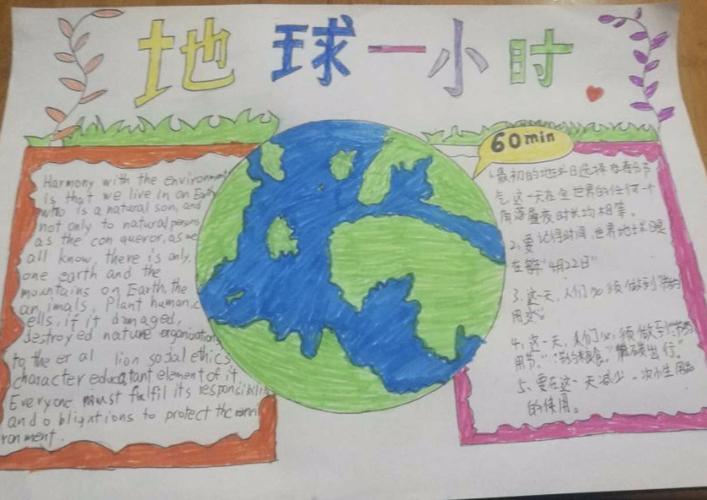 地球一小时
60min
Harmony with the environment
is that we live in an Earth
who is a natural son, and
not only to natural persons
as the conqueror, as we
all know, there is only
one earth and the
mountains on Earth, the
animals, Plant human c
ells, if it damaged,
destroyed nature organization
to the er al lion social ethics
character educatant element of it
Everyone must fulfil its responsibiliti
and obligations to protect the
ronment.
1、最初的地球日选择在春分节
气,这一天在全世界的任何一个
角落昼夜时长均相等。
2、要记得时间,世界地球日是
在每年"4月22日"
3、这一天,人们必须做到
4、这一天,人们必须做到
出行。"
5、要在这一天减少一次性用品
的使用。